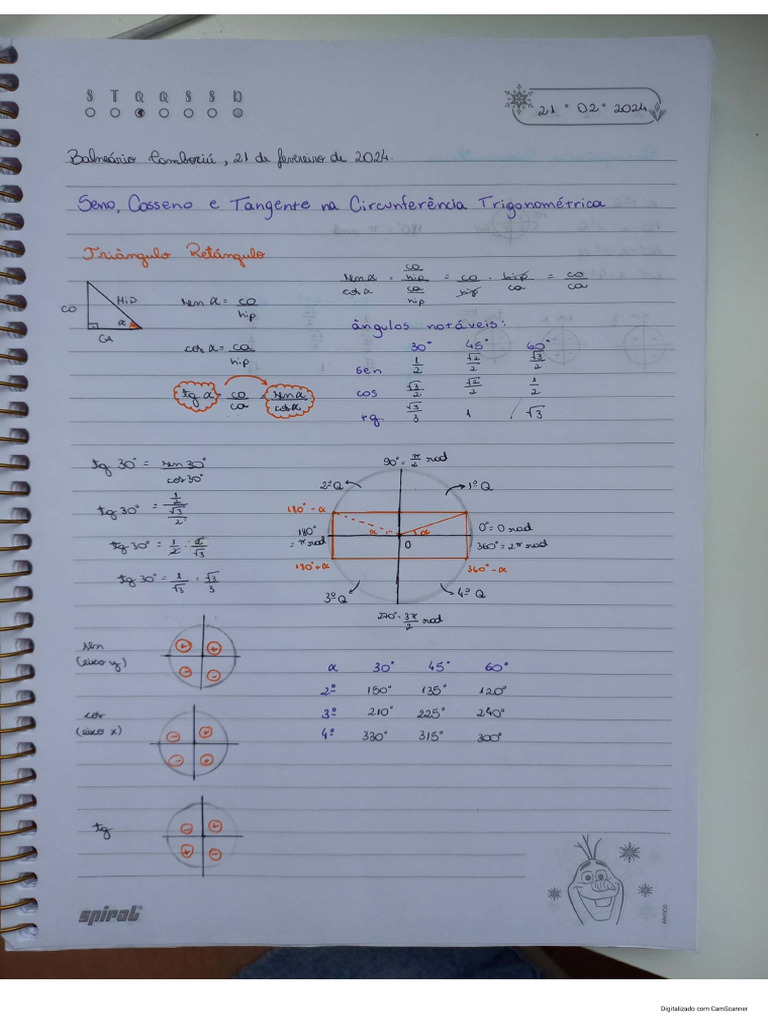 S T Q Q S S D
21 • 02 • 2024
Balneário Camboriú, 21 de fevereiro de 2024.
Seno, Cosseno e Tangente na Circunferência Trigonométrica
Triângulo Retângulo
CO HiP α CA
sen α = co/hip
cos α = ca/hip
tg α = co/ca = sen α/cos α
sen α/cos α = (co/hip)/(ca/hip) = co/hip · hip/ca = co/ca
ângulos notáveis:
30° 45° 60°
sen 1/2 √2/2 √3/2
cos √3/2 √2/2 1/2
tg √3/3 1 √3
tg 30° = sen 30°/cos 30°
tg 30° = (1/2)/(√3/2)
tg 30° = 1/2 · 2/√3
tg 30° = 1/√3 = √3/3
90° = π/2 rad
2º Q 1º Q
180° - α
180° = π rad α α 0 0° = 0 rad
360° = 2π rad
180° + α 360° - α
3º Q 4º Q
270° = 3π/2 rad
sen (eixo y) + + - -
cos (eixo x) - + - +
tg - + + -
α 30° 45° 60°
2º 150° 135° 120°
3º 210° 225° 240°
4º 330° 315° 300°
spiral
Digitalizado com CamScanner